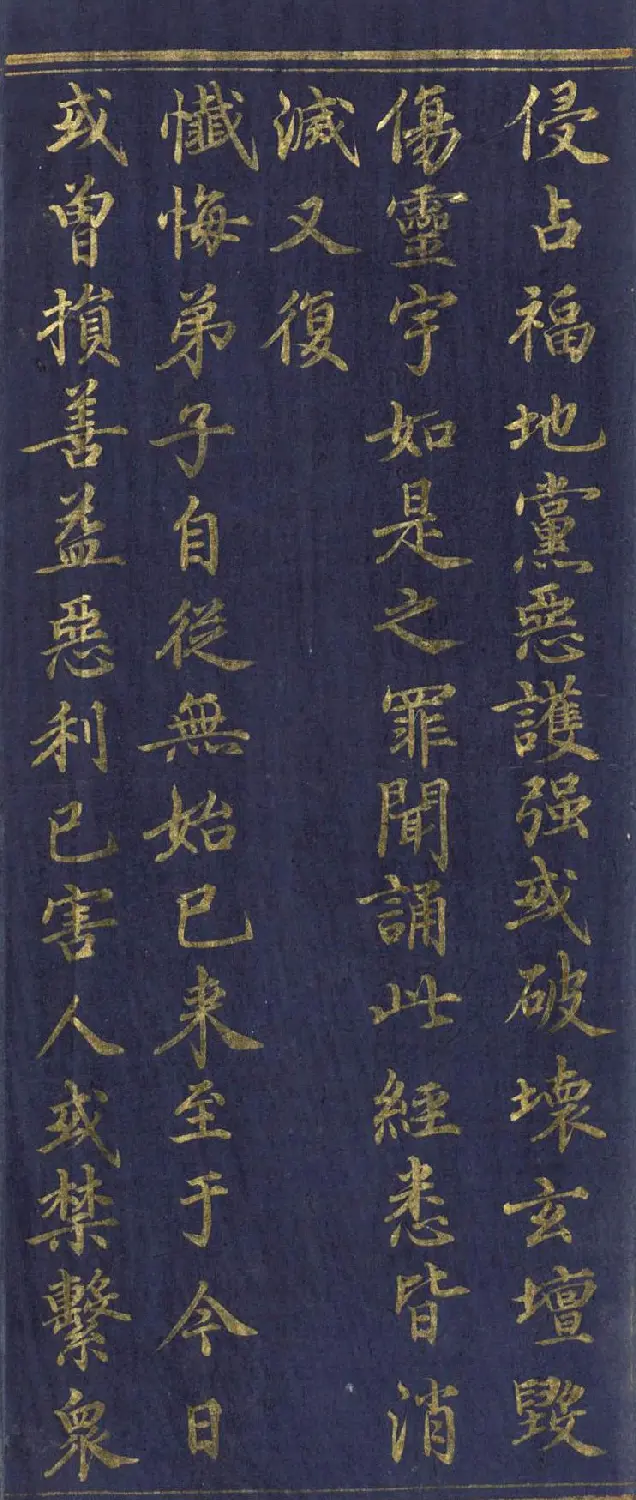 侵占福地黨惡護强或破壊玄壇毀
傷靈宇如是之罪聞誦此經悉皆消
滅又復
懺悔弟子自從無始已来至于今日
或曽損善益惡利已害人或禁繫衆